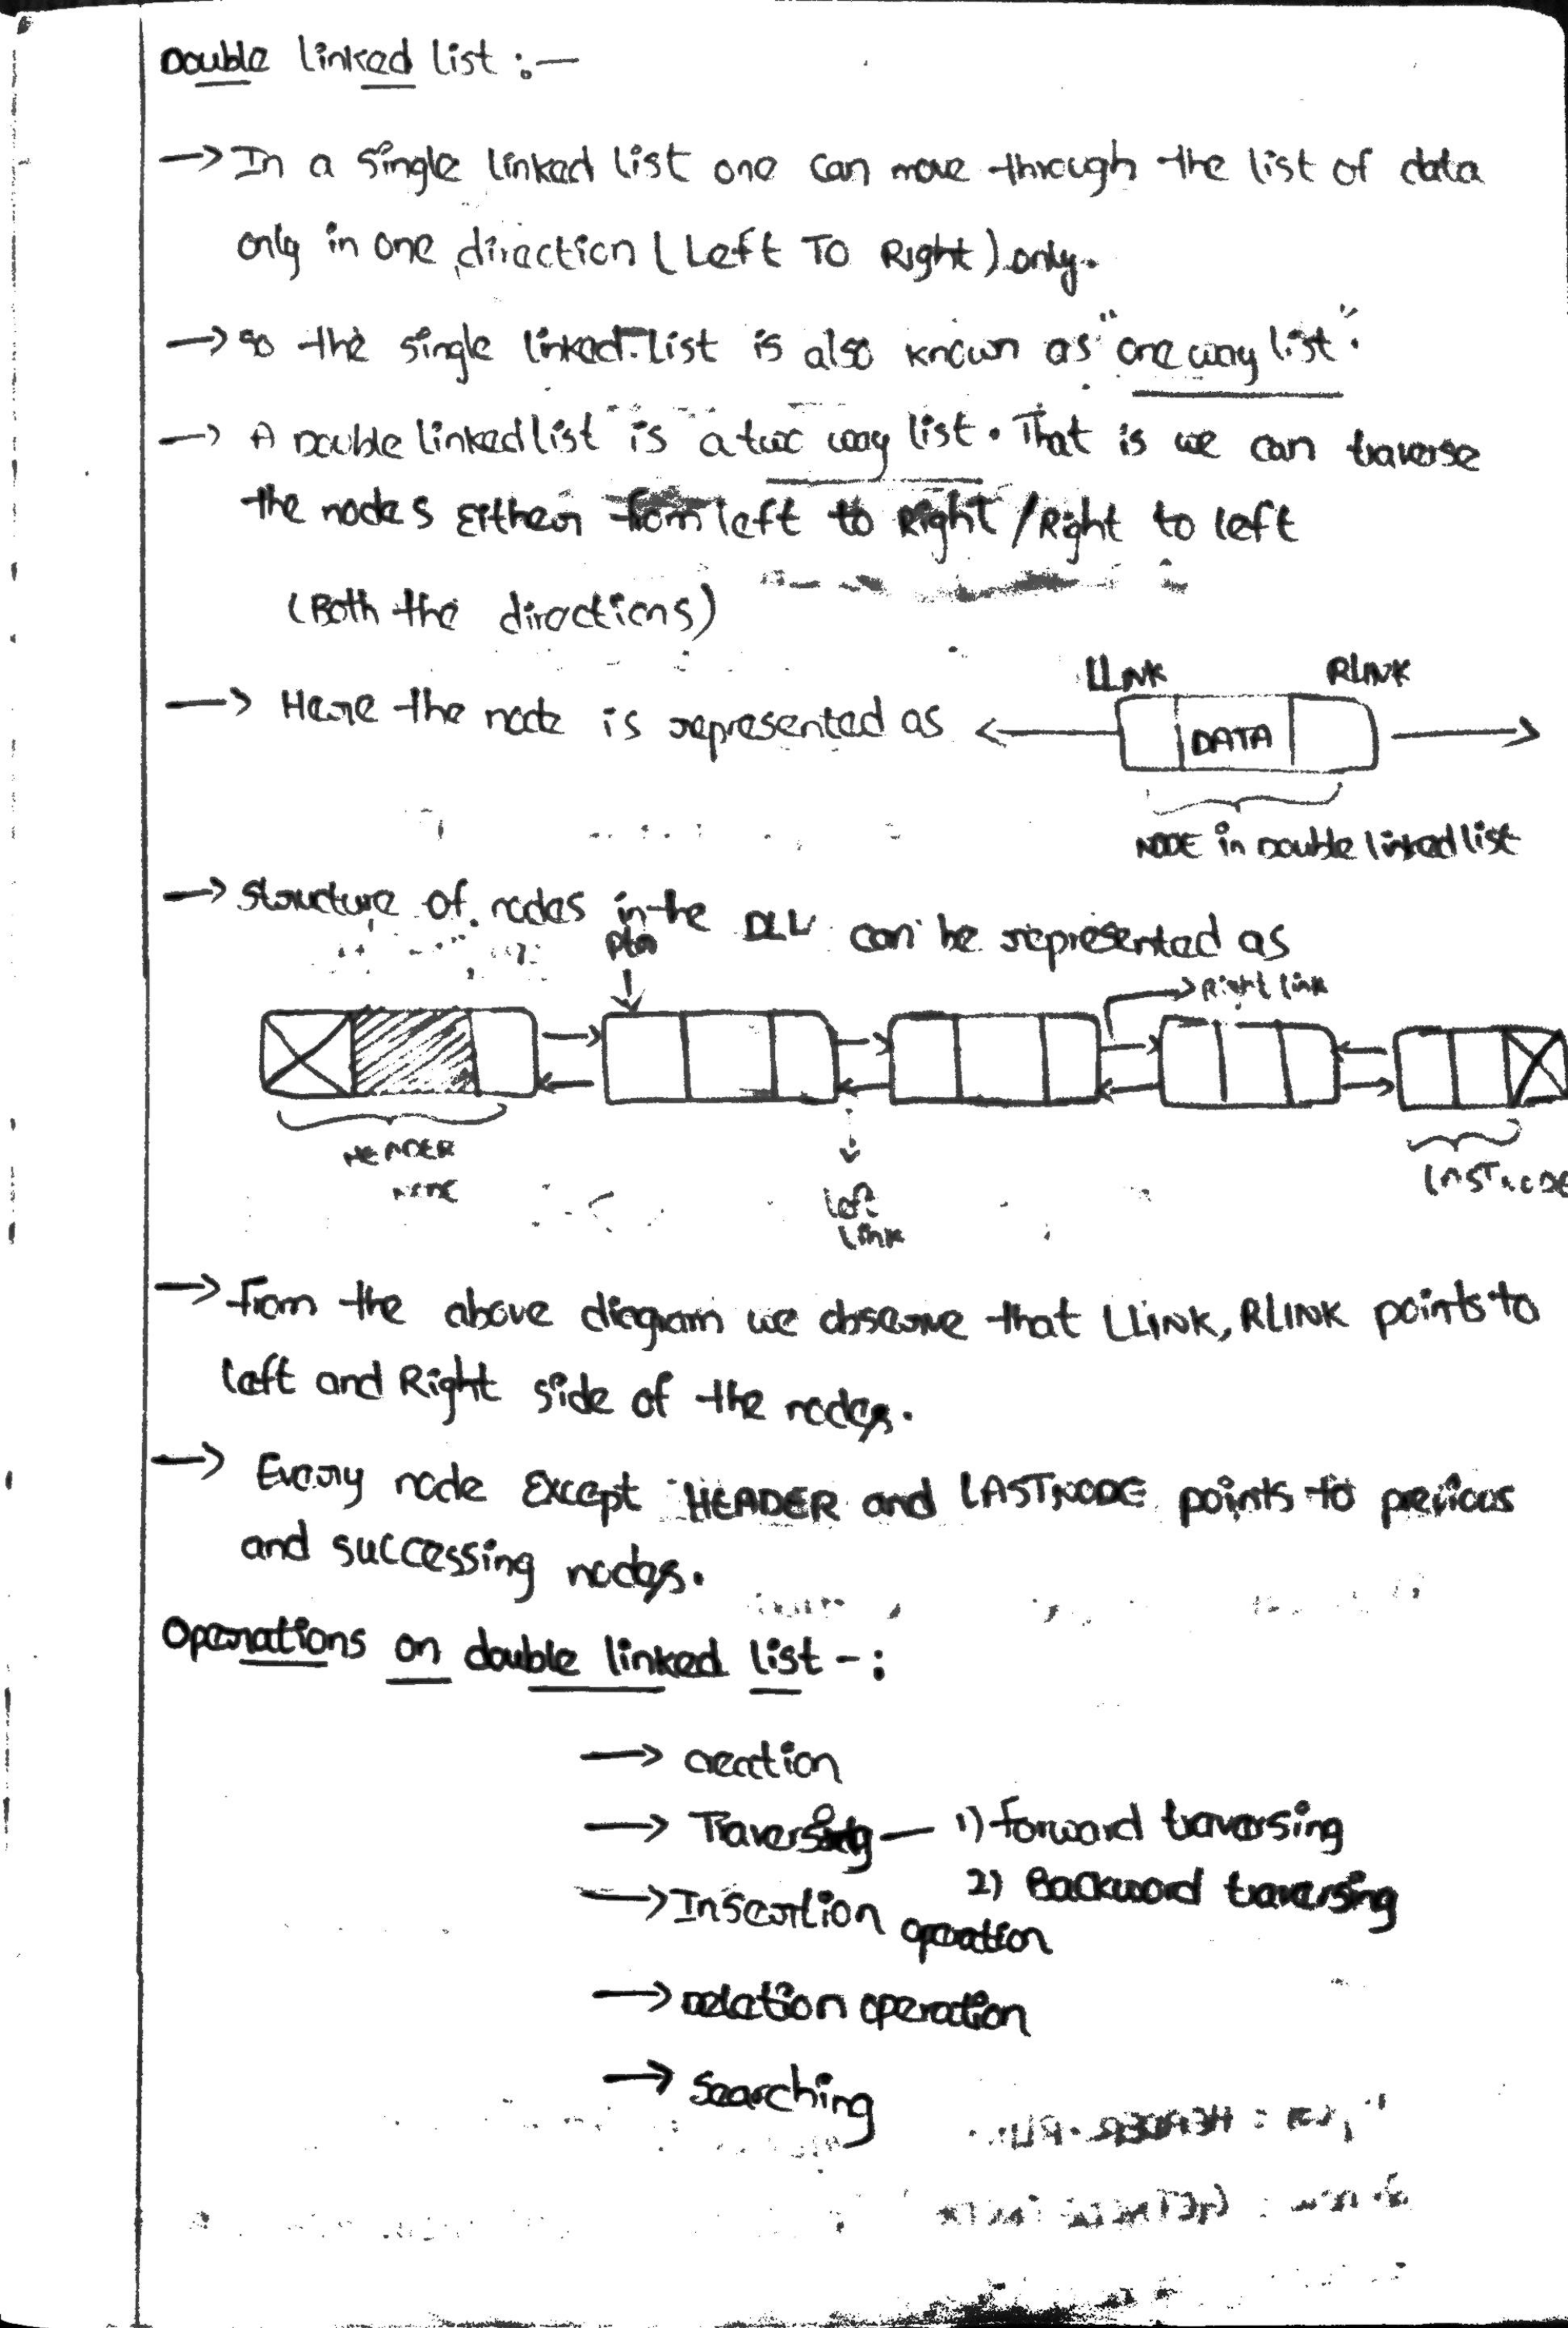 Double linked list :-
→ In a single linked list one can move through the list of data
only in one direction (Left To Right) only.
→ so the single linked list is also known as "one way list".
→ A Double linked list is a two way list. That is we can traverse
the nodes Either from left to Right / Right to left
(Both the directions)
LLINK RLINK
→ Here the node is represented as ← DATA →
NODE in Double linked list
→ Structure of nodes in the DLL can be represented as
ptr
Right link
HEADER
NODE
LASTNODE
Left
link
→ from the above diagram we observe that LLINK, RLINK points to
left and Right side of the nodes.
→ Every node Except HEADER and LASTNODE points to previous
and successing nodes.
Operations on double linked list -:
→ creation
→ Traversing — 1) forward traversing
2) Backword traversing
→ Insertion operation
→ Deletion operation
→ Searching